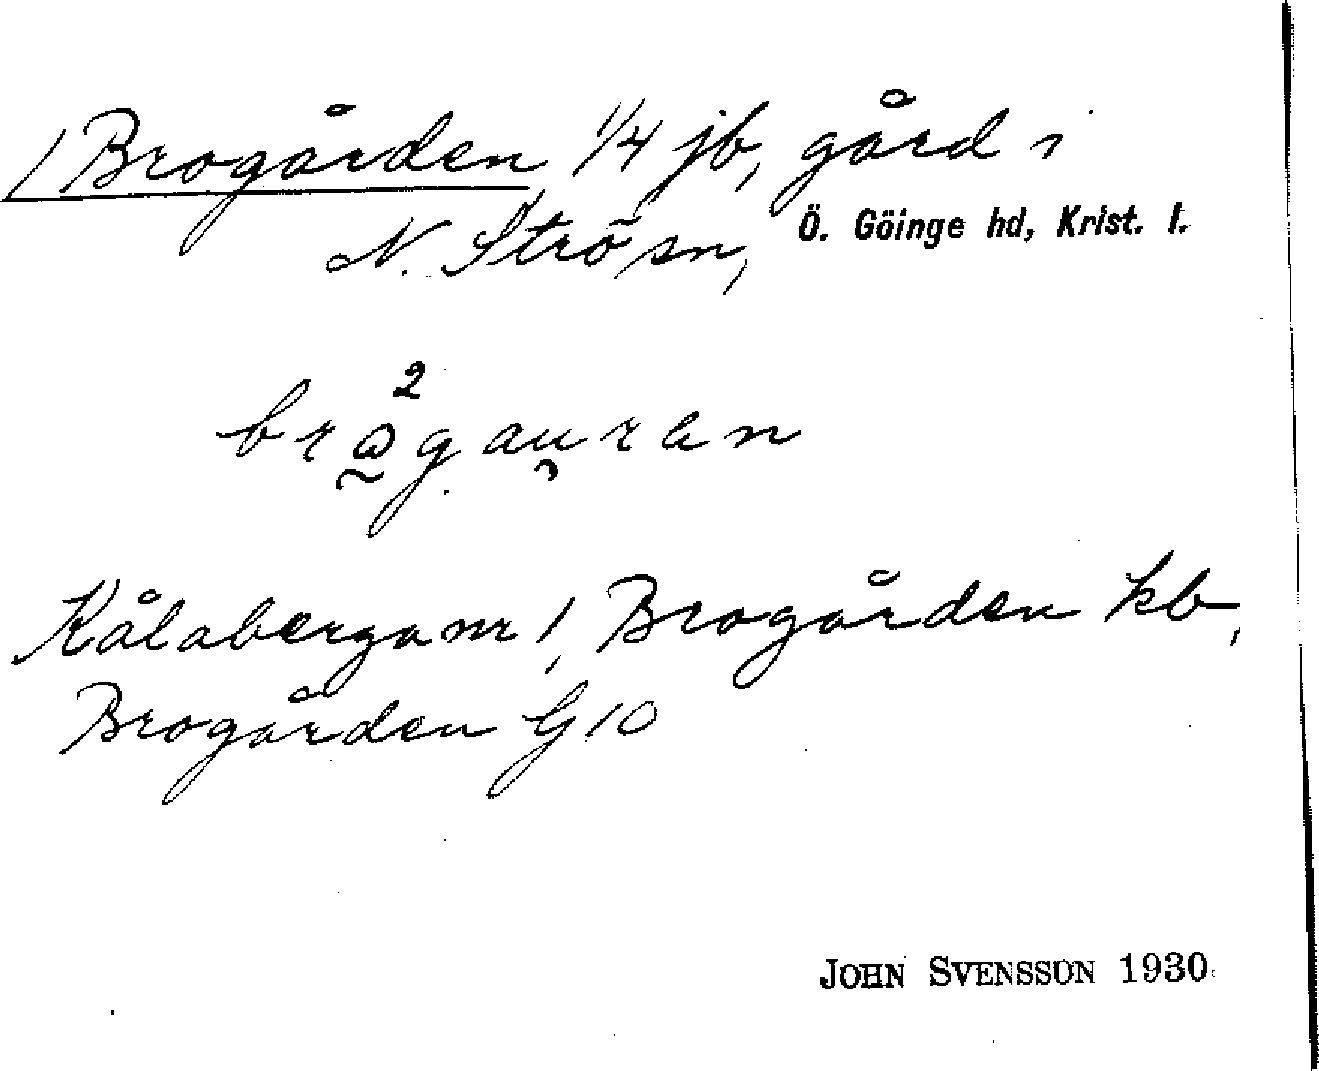 1 Brogården 1/4 jb, gård i
N. Strö sn, Ö. Göinge hd, Krist. l.
2
brωgauran
Kålaberga nr 1, Brogården kb,
Brogården G 10
JOHN SVENSSON 1930